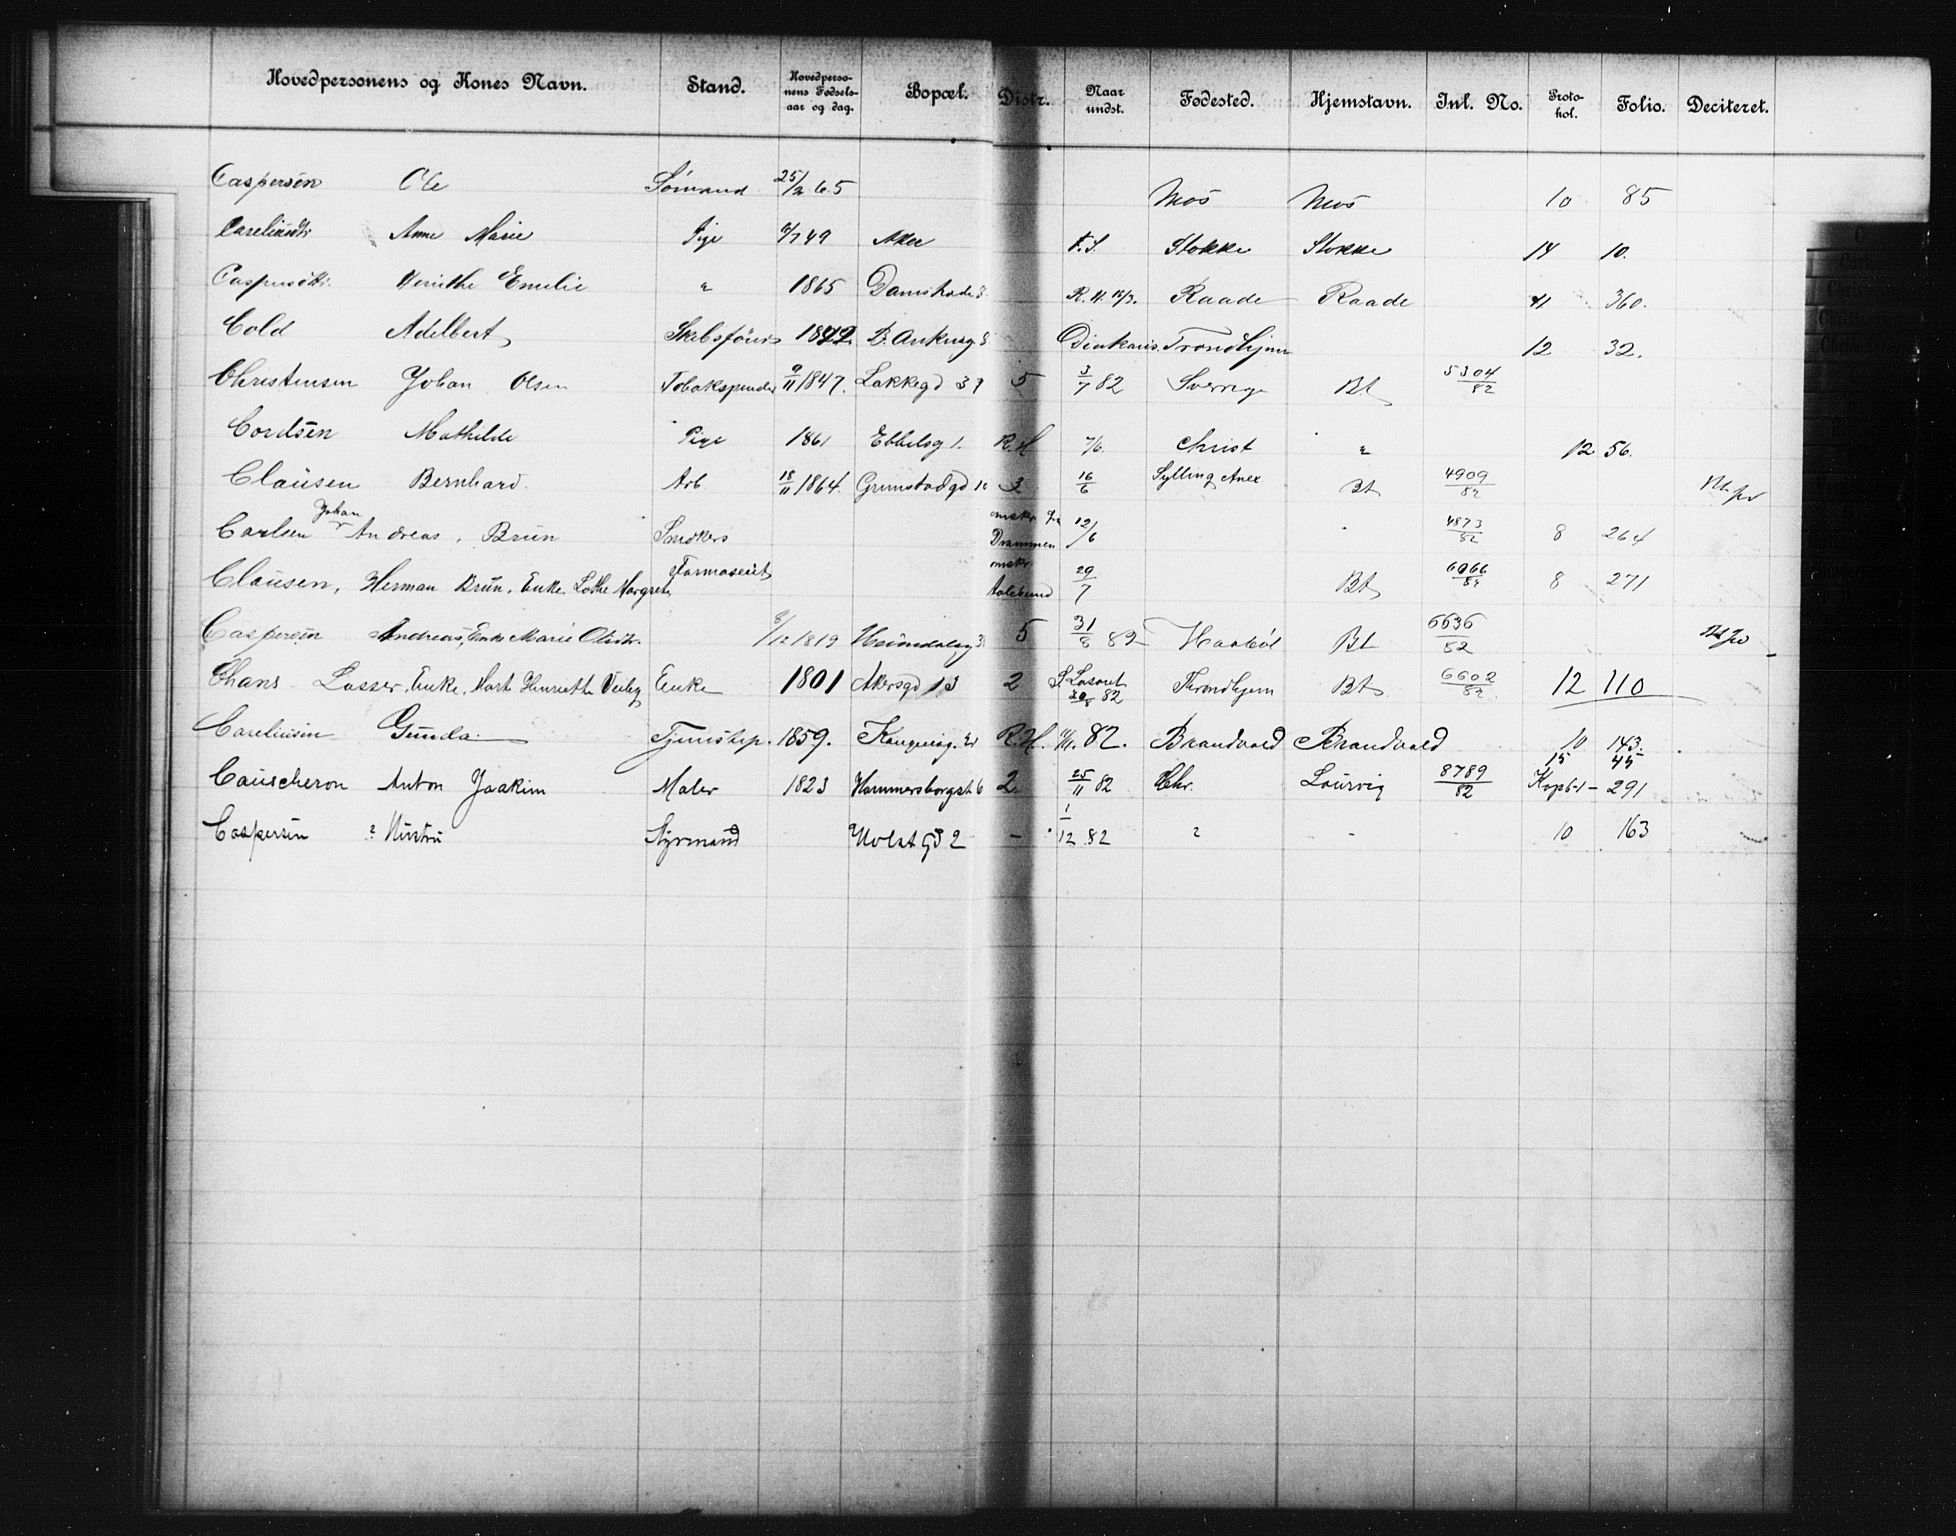 Hovedpersonens og Kones Navn. Stand. Hovedperso-nens Fødsels-aar og dag. Bopæl. Distr. Naar undst. Fødested. Hjemstavn. Inl. No. Proto-kol. Folio. Deciteret.
Caspersen Ole Sømand 25/2 65 Mos Mos 10 85
Anne Marie Pige 49 Aker F.S. Stokke Stokke 14 10.
Emilie " 1865 R.H. Raade Raade 11 360.
Cold Adelbert Skibsfører B. Ankersg Diakonis. Trondhjem 12 32.
Christensen Johan Olsen Tobakspinder 9/11 1847. Lakkegd 37 5 3/7 82 Sverrige Bt 5304/82
Cordsen Mathilde Pige 1861 Ebbelsg 1. R.H 7/6. Christ " 12 56.
Clausen Bernhard. Arb 18/11 1864. Grimstadgd 3 16/6 Sylling Anex Bt 4909/82
Carlsen Johan Andreas, Brun Snedkers omskr. fra Drammen 12/6 4873/82 8 264
Clausen, Herman Brun, Enke Lothe Margrete Farmaseut omskr. Aalesund 29/7 Bt 8 271
Caspersen Andreas, Enke Marie Olsdtr. 8/12 1819 Heimdalsg 5 31/8 82 Haabøl Bt 6636/82
Chans Lasser, Enke, Mart Henriette Enke 1801 Akersgd 13 2 Lasaret 82 Throndhjem Bt 6602/82 12 110
Careliusen Gunda Tjenstep. 1859. R.H. 82. Brandvold Brandvold 10 143.
15 45
Causcheron Anton Joakim Maler 1823 Hammersborgst 6 2. 25/11 82 Chr. Laurvig 8789/82 291
Caspersen ? Hustru Styrmand Holst Gd 2 – 1/12 82 ? - - 10 163